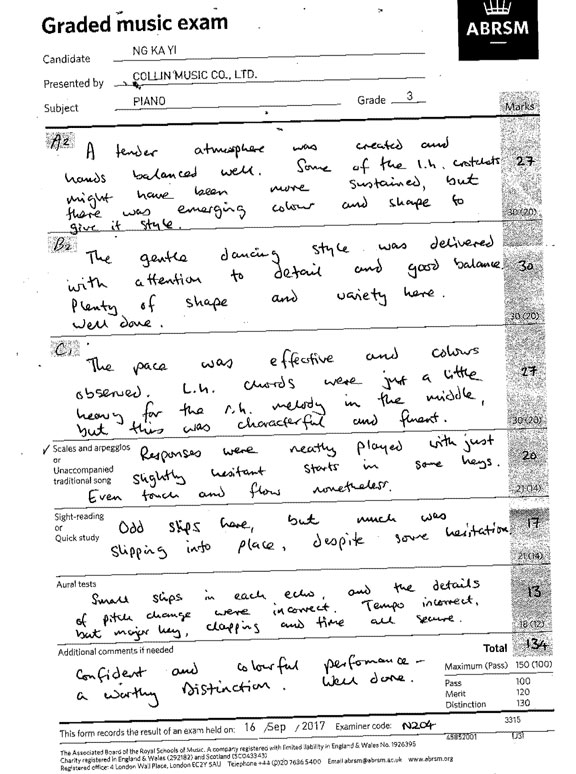 Graded music exam
ABRSM
Candidate NG KA YI
Presented by COLLIN MUSIC CO., LTD.
Subject PIANO Grade 3
Marks
A2 A tender atmosphere was created and
hands balanced well. Some of the l.h. crotchets 27
might have been more sustained, but
there was emerging colour and shape to
give it style. 30 (20)
B2 The gentle dancing style was delivered
with attention to detail and good balance. 30
Plenty of shape and variety here.
Well done. 30 (20)
C1 The pace was effective and colours
observed. L.h. chords were just a little 27
heavy for the r.h. melody in the middle,
but this was characterful and fluent. 30 (20)
Scales and arpeggios
or
Unaccompanied
traditional song
Responses were neatly played with just
slightly hesitant starts in some keys. 20
Even touch and flow nonetheless. 21 (14)
Sight-reading
or
Quick study
Odd slips here, but much was 17
slipping into place, despite some hesitation. 21 (14)
Aural tests
Small slips in each echo, and the details 13
of pitch change were incorrect. Tempo incorrect,
but major key, clapping and time all secure. 18 (12)
Additional comments if needed
Total 134
Confident and colourful performance –
a worthy Distinction. Well done.
Maximum (Pass) 150 (100)
Pass 100
Merit 120
Distinction 130
This form records the result of an exam held on: 16 / Sep / 2017 Examiner code: N204
3315
65852001 (J3)
The Associated Board of the Royal Schools of Music. A company registered with limited liability in England & Wales No. 1926395
Charity registered in England & Wales (292182) and Scotland (SC043343)
Registered office: 4 London Wall Place, London EC2Y 5AU Telephone +44 (0)20 7636 5400 Email abrsm@abrsm.ac.uk www.abrsm.org